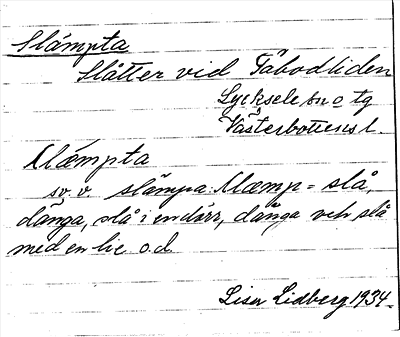 Slämpta
Slåtter vid Fäbodliden
Lycksele bn o tg
Västerbottens l.
Slæmpta
sv. v. slämpa: slæmp = slå,
dänga, slå i en dörr, dänga och slå
med en lie o.d.
Lisa Lidberg 1934